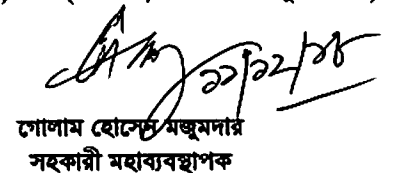 গোলাম হোসেন মজুমদার
সহকারী মহাব্যবস্থাপক